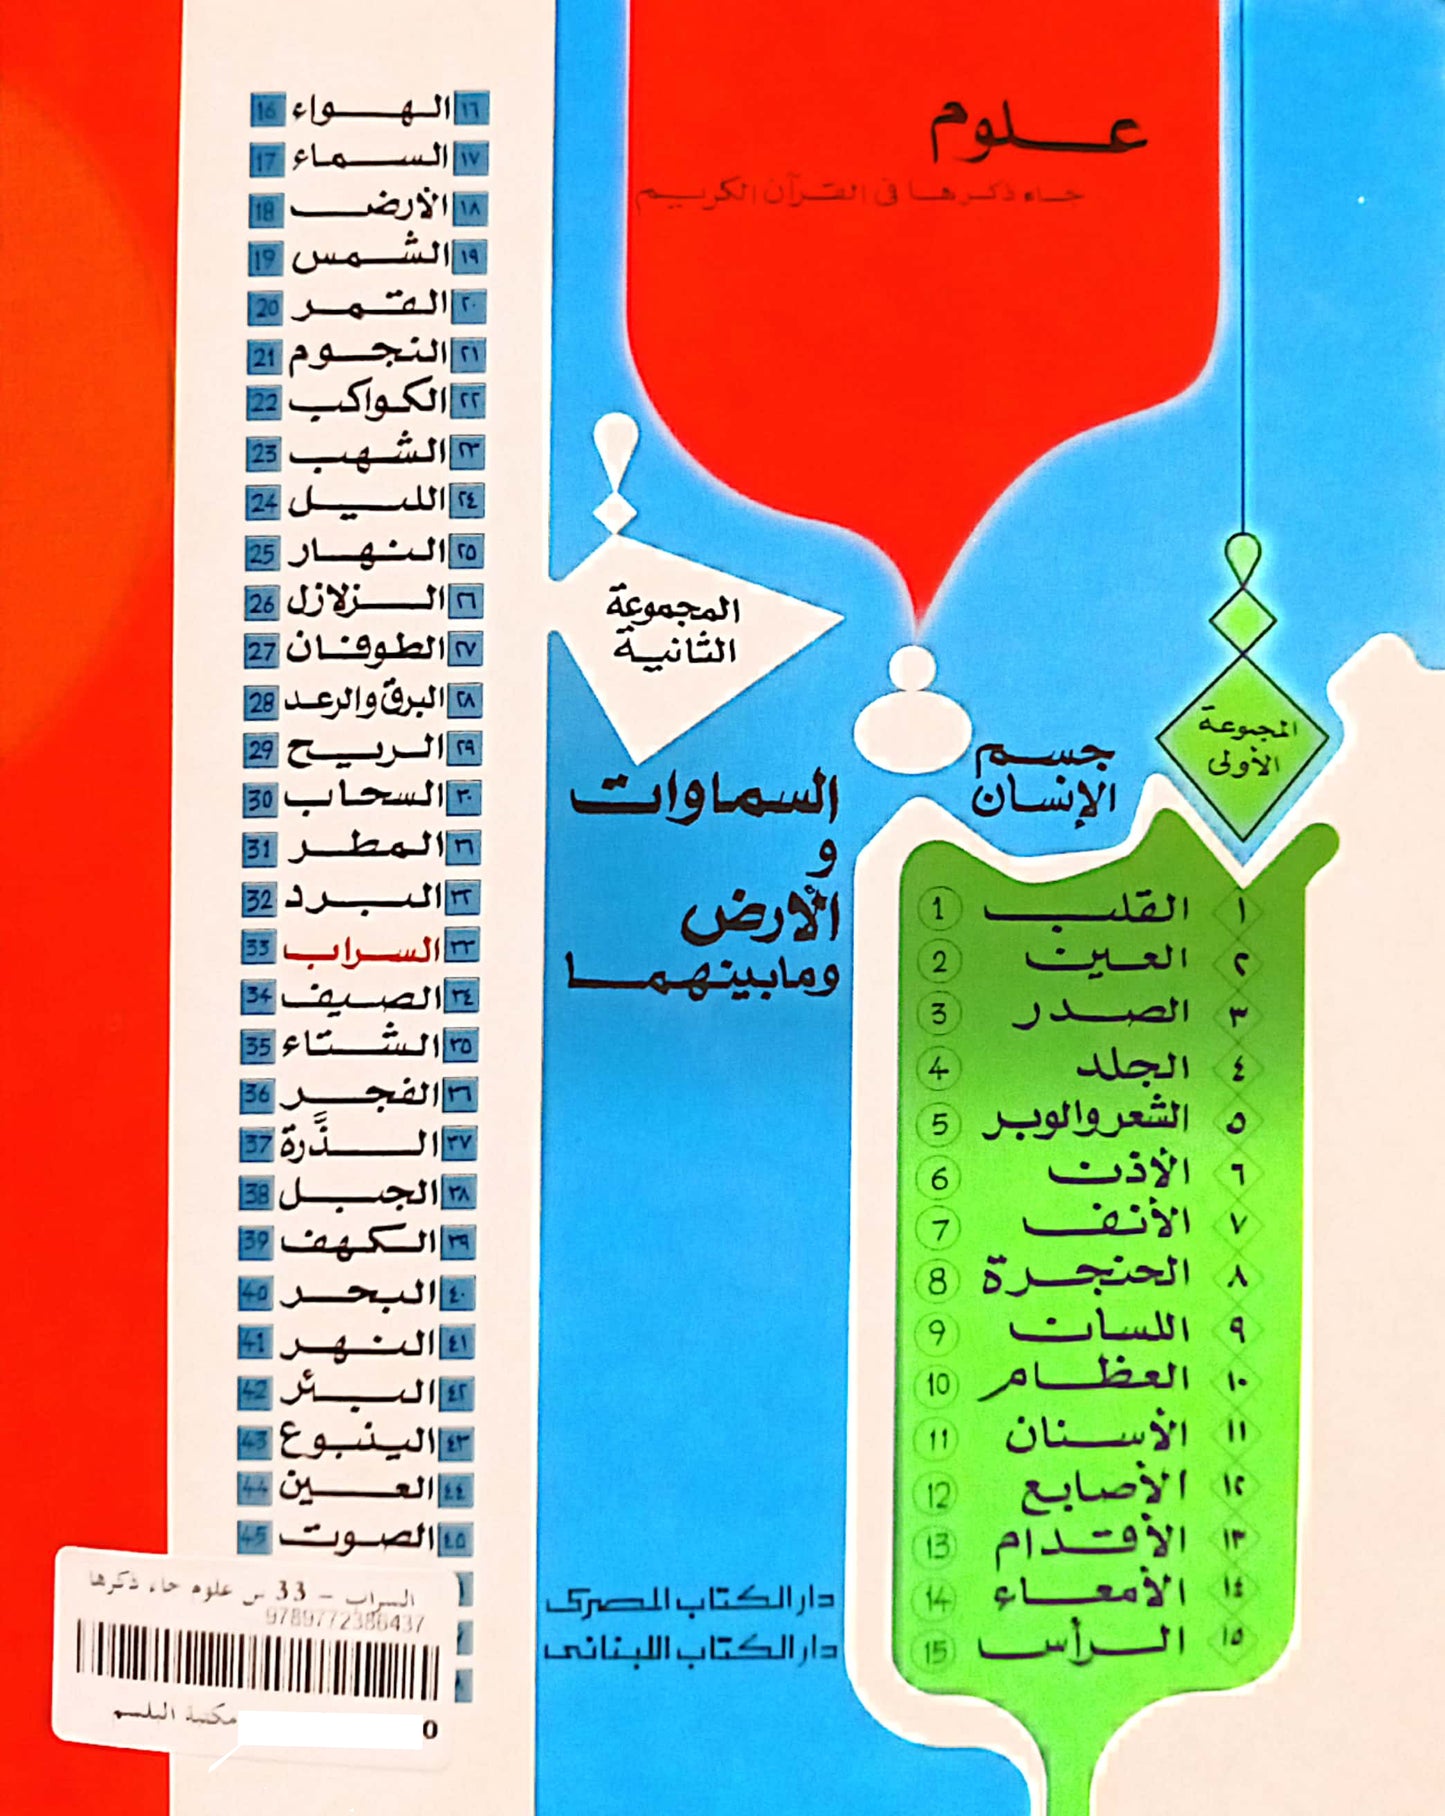 علوم
جاء ذكرها في القرآن الكريم
المجموعة
الأولى
جسم
الإنسان
١ القلب 1
٢ العين 2
٣ الصدر 3
٤ الجلد 4
٥ الشعر والوبر 5
٦ الأذن 6
٧ الأنف 7
٨ الحنجرة 8
٩ اللسان 9
١٠ العظام 10
١١ الأسنان 11
١٢ الأصابع 12
١٣ الأقدام 13
١٤ الأمعاء 14
١٥ الرأس 15
المجموعة
الثانية
السماوات
و
الأرض
وما بينهما
١٦ الهواء 16
١٧ السماء 17
١٨ الأرض 18
١٩ الشمس 19
٢٠ القمر 20
٢١ النجوم 21
٢٢ الكواكب 22
٢٣ الشهب 23
٢٤ الليل 24
٢٥ النهار 25
٢٦ الزلازل 26
٢٧ الطوفان 27
٢٨ البرق والرعد 28
٢٩ الريح 29
٣٠ السحاب 30
٣١ المطر 31
٣٢ البرد 32
٣٣ السراب 33
٣٤ الصيف 34
٣٥ الشتاء 35
٣٦ الفجر 36
٣٧ الذَّرة 37
٣٨ الجبل 38
٣٩ الكهف 39
٤٠ البحر 40
٤١ النهر 41
٤٢ البئر 42
٤٣ الينبوع 43
٤٤ العين 44
٤٥ الصوت 45
دار الكتاب المصرى
دار الكتاب اللبنانى
السراب - 33 س علوم جاء ذكرها
9789772386437
مكتبة البلسم
0